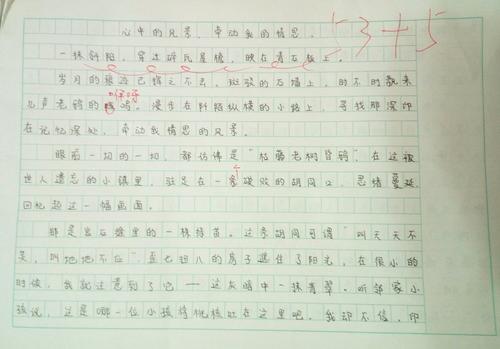 心中的风景，牵动我的情思。 53+5
一抹斜阳，穿过碎瓦屋檐，映在青石板上。
岁月的痕迹已悄无不在，斑驳的石墙上，时不时飘来
几声老鸦的鸣。漫步在阡陌纵横的小路上，寻找那深印
在记忆深处，牵动我情思的风景。
眼前一切的一切，都仿佛是"枯藤老树昏鸦"，在这被
世人遗忘的小镇里，驻足在一个破败的胡同口，思绪蔓延
回忆起这一幅画面。
那是岩石缝里的一抹绿苗。这条胡同可谓"叫天天不
灵，叫地地不应"，歪七扭八的房子遮住了阳光，在很小的
时候，我就注意到了它——这灰暗中一抹青翠。听邻家小
孩说，这是哪一位小孩将桃核吐在这里吧，我却不信，仰